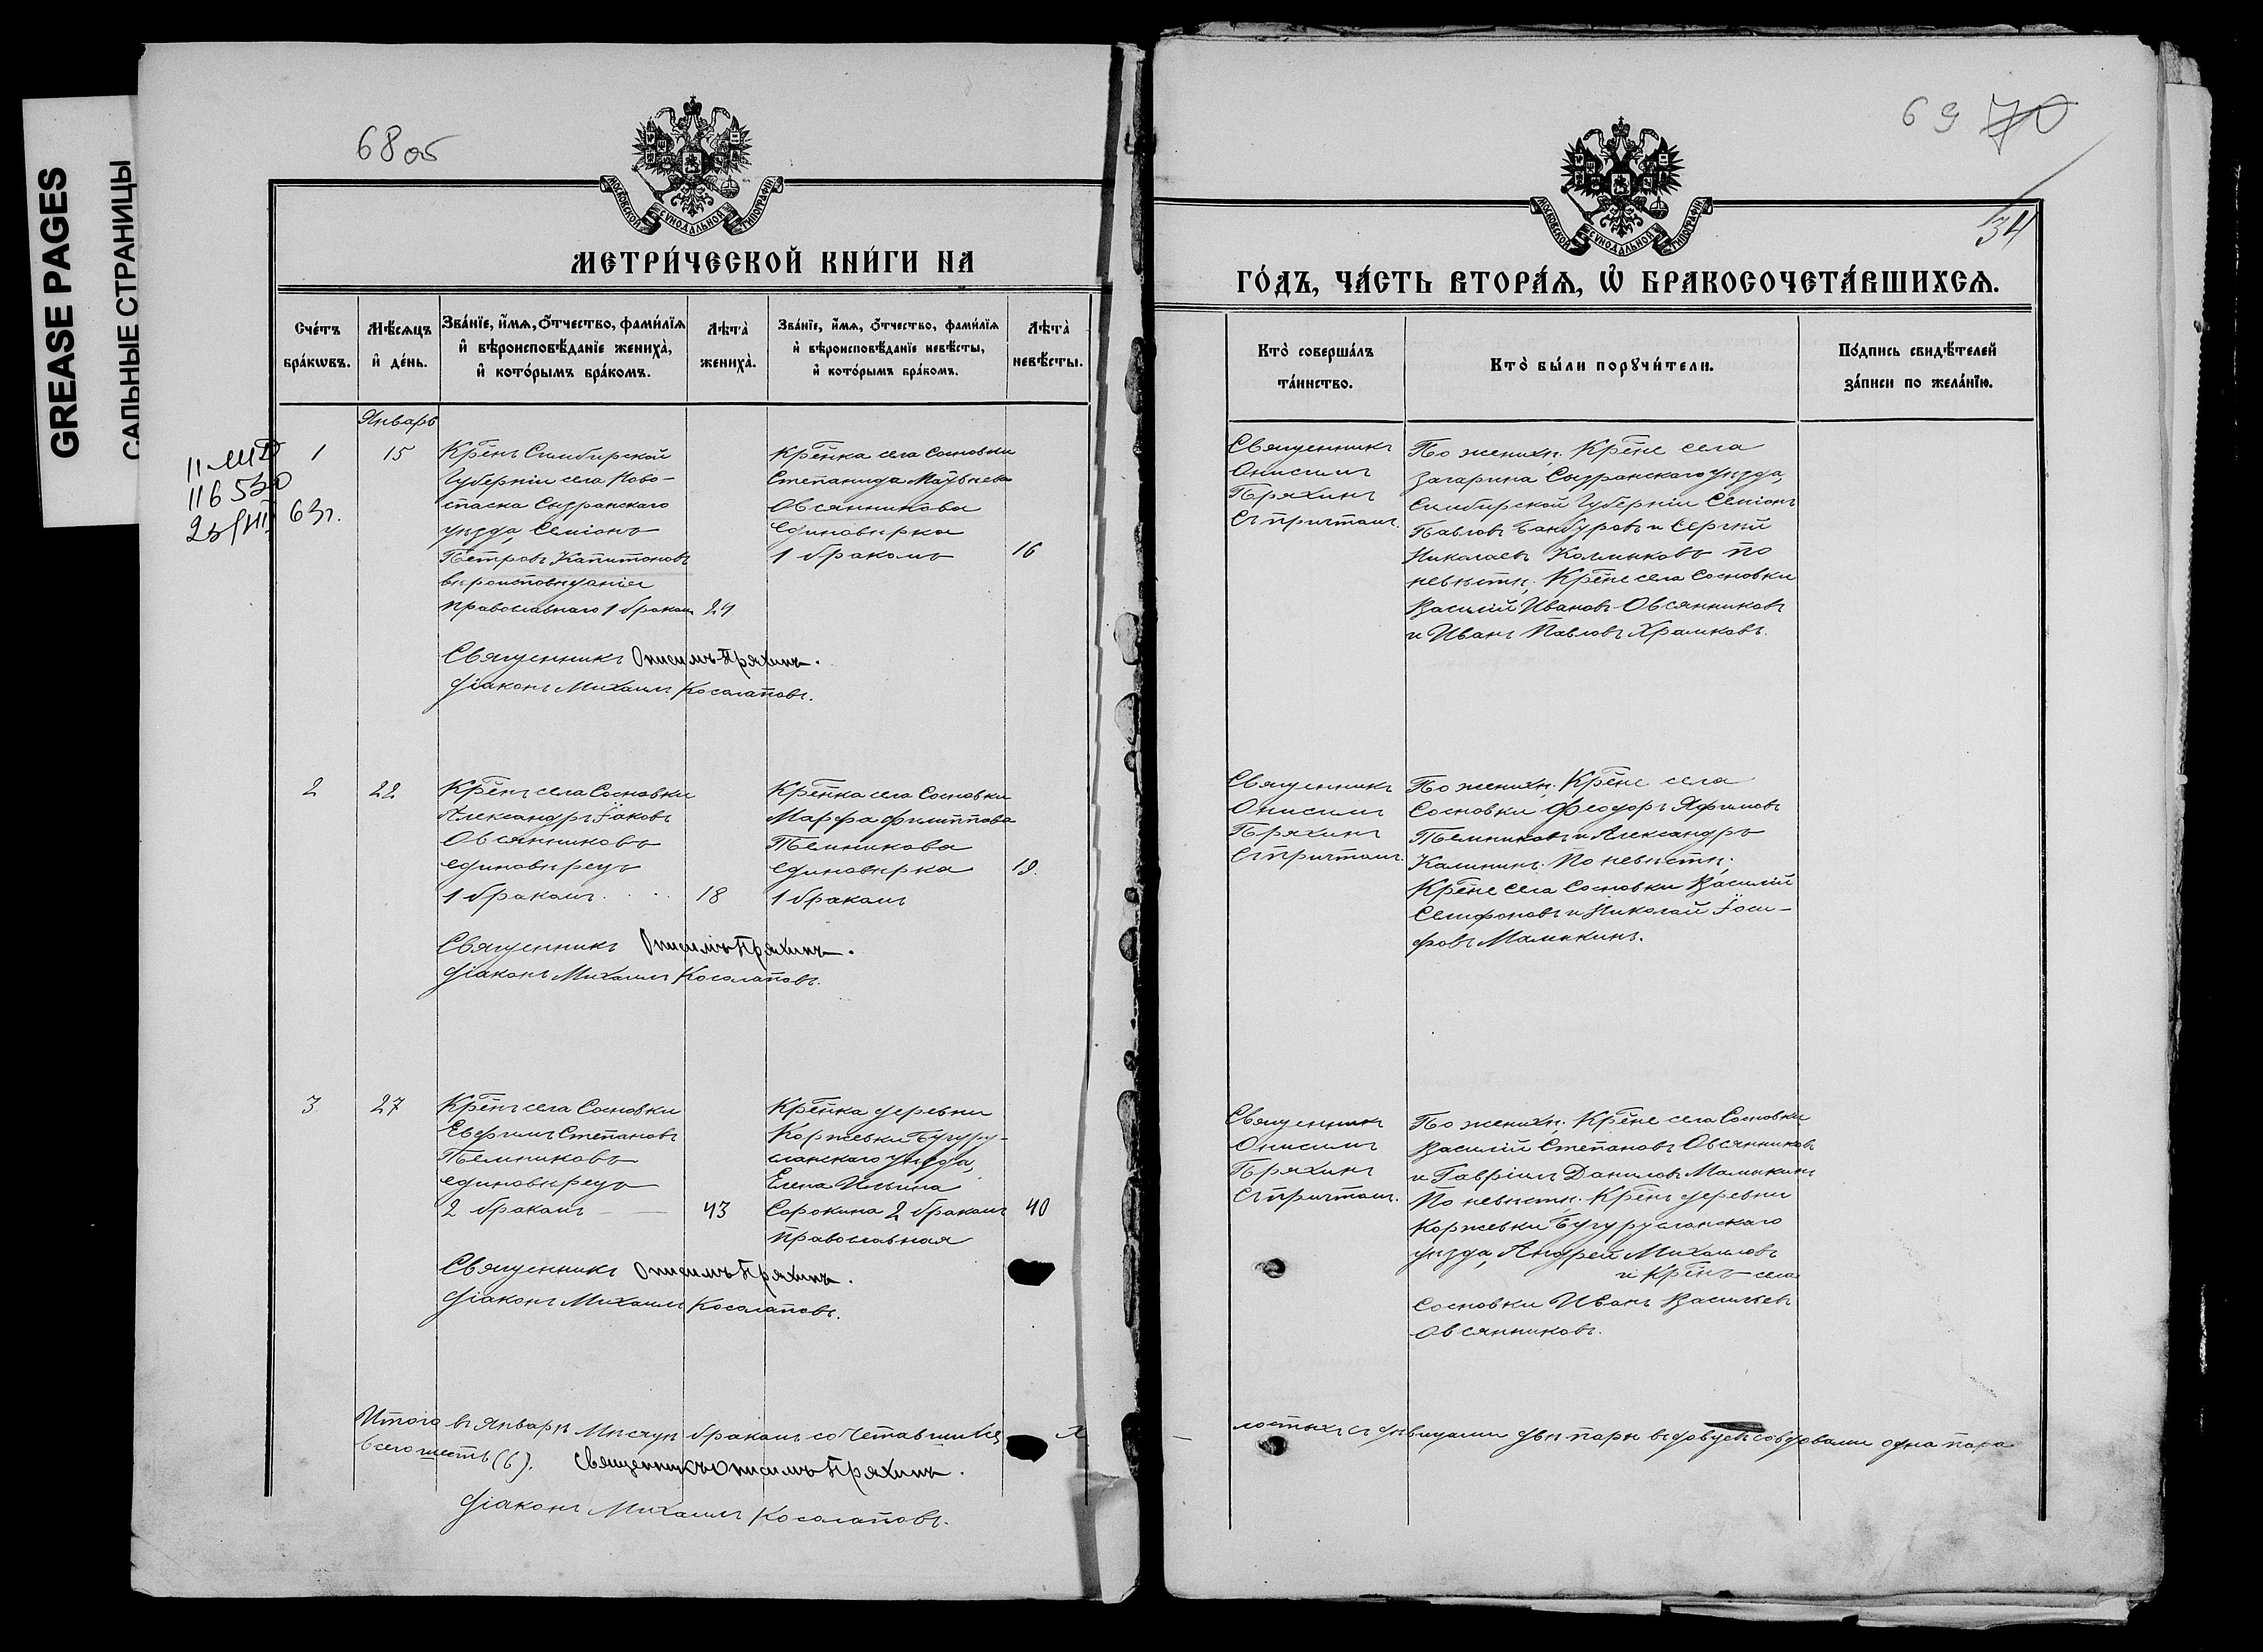 GREASE PAGES
САЛЬНЫЕ СТРАНИЦЫ
68 об
МОСКОВСКОЙ СѴНОДАЛЬНОЙ ТИПОГРАФІИ
МЕТРИ́ЧЕСКОЙ КНИ́ГИ НА
Сче́тъ бра́кѡвъ.
Мѣ́сяцъ и҆ де́нь.
Зва́нїе, и҆́мѧ, ѻ҆́тчество, фами́лїѧ
и҆ вѣроисповѣ́данїе жениха̀,
и҆ кото́рымъ бра́комъ.
Лѣта̀ жениха̀.
Зва́нїе, и҆́мѧ, ѻ҆́тчество, фами́лїѧ
и҆ вѣроисповѣ́данїе невѣ́сты,
и҆ кото́рымъ бра́комъ.
Лѣта̀ невѣ́сты.
Январь
1
15
63г.
Крѣнъ Симбирской
Губерніи села Ново-
спаска Сызранскаго
уѣзда, Семіонъ
Петровъ Капитоновъ
вѣроисповѣданія
православнаго 1 бракомъ
24
Крѣнка села Сосновки
Степанида Матвѣева
Овсянникова
единовѣрка
1 бракомъ
16
Священникъ Онисимъ Пряхинъ.
Діаконъ Михаилъ Косолаповъ.
2
22
Крѣнъ села Сосновки
Александръ Іаковъ
Овсянниковъ
единовѣрецъ
1 бракомъ
18
Крѣнка села Сосновки
Марфа Филиппова
Темникова
единовѣрка
1 бракомъ
19.
Священникъ Онисимъ Пряхинъ.
Діаконъ Михаилъ Косолаповъ.
3
27
Крѣнъ села Сосновки
Евфимъ Степановъ
Темниковъ
единовѣрецъ
2 бракомъ
43
Крѣнка деревни
Коржевки Бугуру-
сланскаго уѣзда,
Елена Ильина
Сорокина 2 бракомъ
православная
40
Священникъ Онисимъ Пряхинъ.
Діаконъ Михаилъ Косолаповъ.
Итого въ Январѣ Мѣсяцѣ бракомъ сочетавшихся
всего шесть (6). Священникъ Онисимъ Пряхинъ.
Діаконъ Михаилъ Косолаповъ.
69 70
34
МОСКОВСКОЙ СѴНОДАЛЬНОЙ ТИПОГРАФІИ
ГО́ДЪ, ЧА́СТЬ ВТОРА́Ѧ, Ѡ҆ БРАКОСОЧЕТА́ВШИХСѦ.
Кто̀ соверша́лъ
та́инство.
Кто̀ бы́ли порꙋчи́тели.
По́дпись свидѣ́телей
за́писи по жела́нїю.
Священникъ
Онисимъ
Пряхинъ
съ причтомъ.
По женихѣ: Крѣне села
Загарина Сызранскаго уѣзда,
Симбирской Губерніи Семіонъ
Павловъ Банбуровъ и Сергій
Николаевъ Колмыковъ по
невѣстѣ: Крѣне села Сосновки
Василій Ивановъ Овсянниковъ
и Иванъ Павловъ Храмковъ.
Священникъ
Онисимъ
Пряхинъ
съ причтомъ.
По женихѣ: Крѣне села
Сосновки Феодоръ Яфимовъ
Темниковъ и Александръ
Калининъ. По невѣстѣ:
Крѣне села Сосновки Василій
Селифоновъ и Николай Іоси-
фовъ Малыкинъ.
Священникъ
Онисимъ
Пряхинъ
съ причтомъ.
По женихѣ: Крѣне села Сосновки
Василій Степановъ Овсянниковъ
и Гавріилъ Даниловъ Малыкинъ
По невѣстѣ: Крѣнъ деревни
Коржевки Бугурусланскаго
уѣзда, Андрей Михаиловъ
и Крѣнъ села
Сосновки Иванъ Васильевъ
Овсянниковъ.
лостыхъ съ дѣвицами двѣ пары вдовцевъ со вдовами одна пара